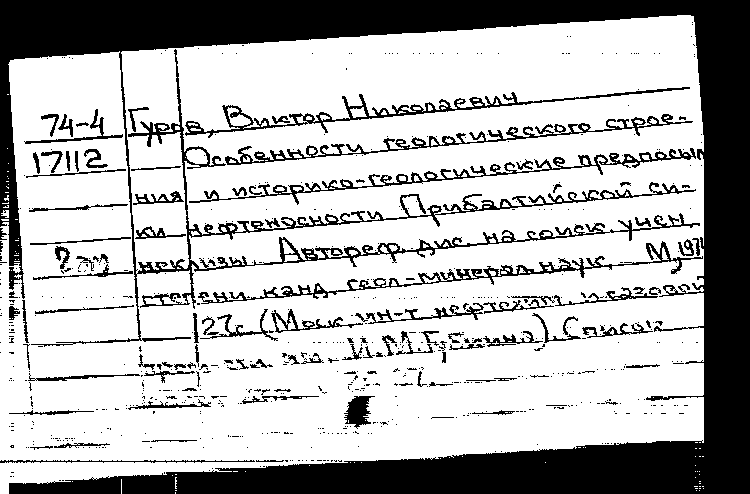 74-4 Гуров, Виктор Николаевич
17112 Особенности геологического строе-
ния и историко-геологические предпосыл
ки нефтеносности Прибалтийской си-
неклизы. Автореф. дис. на соиск. учен.
степени канд. геол.-минерал. наук. М., 1974
27с. (Моск. ин-т нефтехим. и газовой
пром-сти им. И.М.Губкина). Список
27.